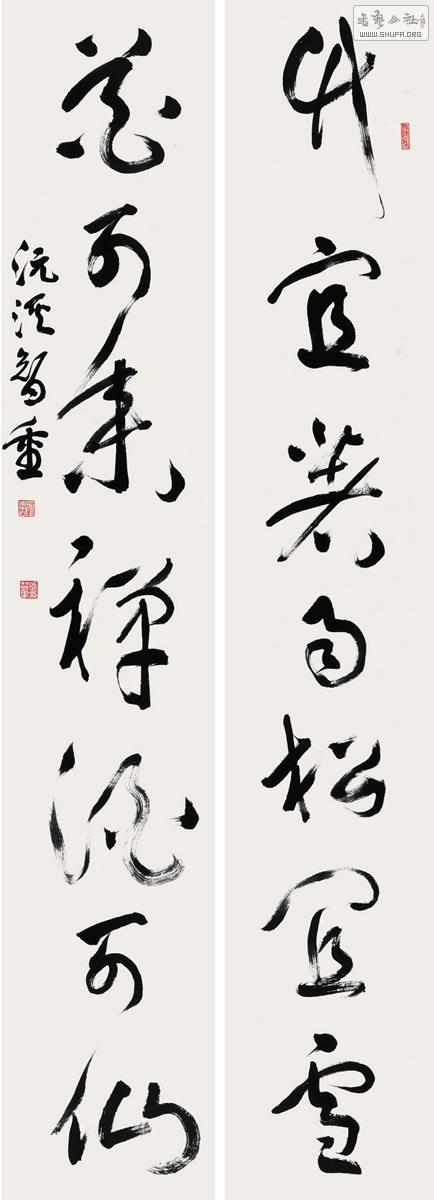 竹宜著雨松宜雪
花可參禪酒可仙
沅溪智重
書藝公社
WWW.SHUFA.ORG